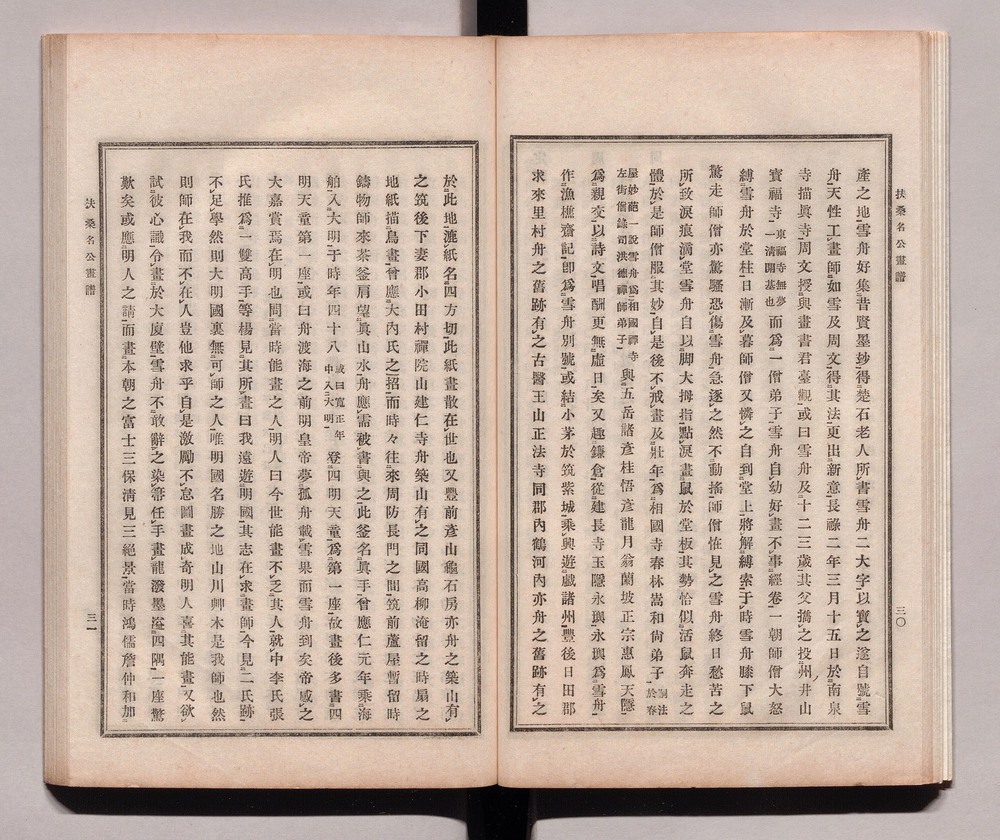 扶桑名公畫譜
三〇
產之地雪舟好集昔賢墨妙得楚石老人所書雪舟二大字以寶之遂自號雪
舟天性工畫師如雪及周文得其法更出新意長祿二年三月十五日於南泉
寺描眞寺周文授與畫書君臺觀或曰雪舟及十二三歲其父攜之投州井山
寶福寺東福寺無夢一清開基也而爲一僧弟子雪舟自幼好畫不事經卷一朝師僧大怒
縛雪舟於堂柱日漸及暮師僧又憐之自到堂上將解縛索于時雪舟膝下鼠
驚走師僧亦驚騷恐傷雪舟急逐之然不動搖師僧恠見之雪舟終日愁苦之
所致淚痕滴堂雪舟自以脚大拇指點淚畫鼠於堂板其勢恰似活鼠奔走之
體於是師僧服其妙自是後不戒畫及壯年爲相國寺春林嵩和尙弟子嗣法於春
屋妙葩一說雪舟爲相國禪寺左街僧錄司洪德禪師弟子與五岳諸彥桂悟彥龍月翁蘭坡正宗惠鳳天隱
爲親交以詩文唱酬更無虛日矣又趣鎌倉從建長寺玉隱永璵永璵爲雪舟
作漁樵齋記卽爲雪舟別號或結小茅於筑紫城乘興遊戲諸州豐後日田郡
求來里村舟之舊跡有之古醫王山正法寺同郡內鶴河內亦舟之舊跡有之
於此地漉紙名四方切此紙畫散在世也又豐前彥山龜石房亦舟之築山有
之筑後下妻郡小田村禪院山建仁寺舟築山有之同國高柳淹留之時扇之
地紙描鳥畫曾應大內氏之招而時々往來周防長門之間筑前蘆屋暫留時
鑄物師來茶釜肩望眞山水舟應需被書與之此釜名眞手曾應仁元年乘海
舶入大明于時年四十八或曰寬正年中入大明登四明天童爲第一座故畫後多書四
明天童第一座或曰舟渡海之前明皇帝夢孤舟載雪果而雪舟到矣帝感之
大嘉賞焉在明也問當時能畫之人明人曰今世能畫不乏其人就中李氏張
氏推爲一雙高手等楊見其所畫曰我遠遊明國其志在求畫師今見二氏跡
不足學然則大明國裏無可師之人唯明國名勝之地山川艸木是我師也然
則師在我而不在人豈他求乎自是激勵不怠圖畫成奇明人喜其能畫又欲
試彼心識令畫於大廈壁雪舟不敢辭之染帚任手畫龍潑墨溢四隅一座驚
歎矣或應明人之請而畫本朝之富士三保淸見三絕景當時鴻儒詹仲和加
扶桑名公畫譜
三一